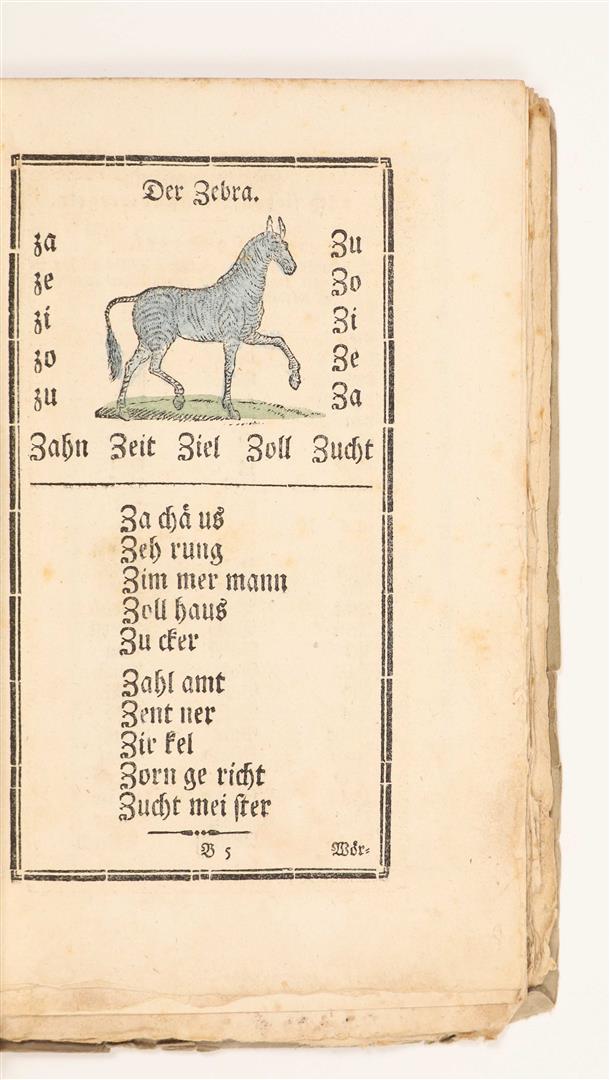 Der Zebra.
za Zu
ze Zo
zi Zi
zo Ze
zu Za
Zahn Zeit Ziel Zoll Zucht
Za chä us
Zeh rung
Zim mer mann
Zoll haus
Zu cker
Zahl amt
Zent ner
Zir kel
Zorn ge richt
Zucht mei ster
B 5 Wör-